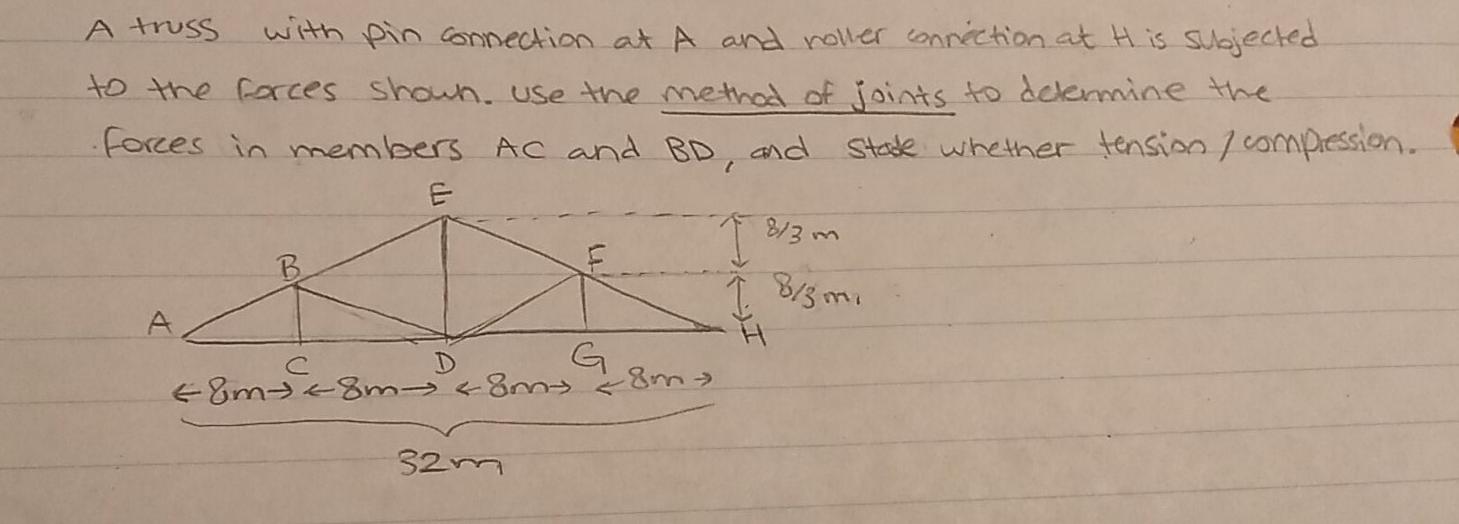 A truss with pin connection at A and roller connection at H is subjected
to the forces shown. Use the method of joints to determine the
forces in members AC and BD, and state whether tension / compression.
E
8/3 m
B
F
8/3 m.
A
H
C
D
G
8m 8m 8m 8m
32m